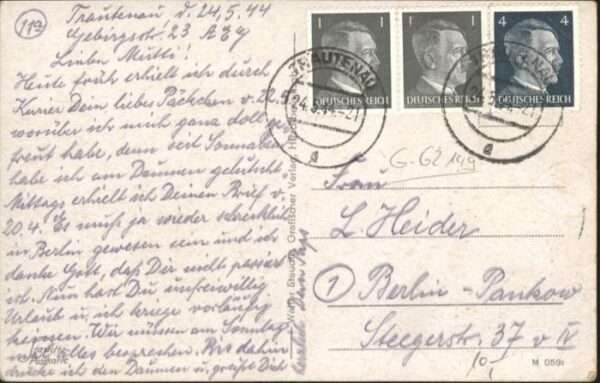 119
Trautenau d. 24.5.44
Gebirgsstr. 23 A 3 g
Liebe Mutti!
Heute früh erhielt ich durch
Kurier Dein liebes Päckchen v. 22.5.
worüber ich mich ganz doll ge-
freut habe, denn seit Sonnabend
habe ich am Daumen gelutscht.
Mittags erhielt ich Deinen Brief v.
20.4. Es muß ja wieder schrecklich
in Berlin gewesen sein und ich
danke Gott, daß Dir nicht passiert
ist. Nun hast Du unfreiwillig
Urlaub u. ich kriege vorläufig
keinen. Wir müssen am Sonntag
mal alles besprechen. Bis dahin
drücke ich den Daumen u. grüße Dich
herzlich Dein
Postkarte
Grafischer Verlag
1
DEUTSCHES REICH
1
DEUTSCHES REICH
4 4
DEUTSCHES REICH
TRAUTENAU
24.5.44.-21
a
TRAUTENAU
24.5.44.-21
a
G-62 149
Frau
L. Heider
1 Berlin-Pankow
Steegerstr. 37 v IV
10,
M 059